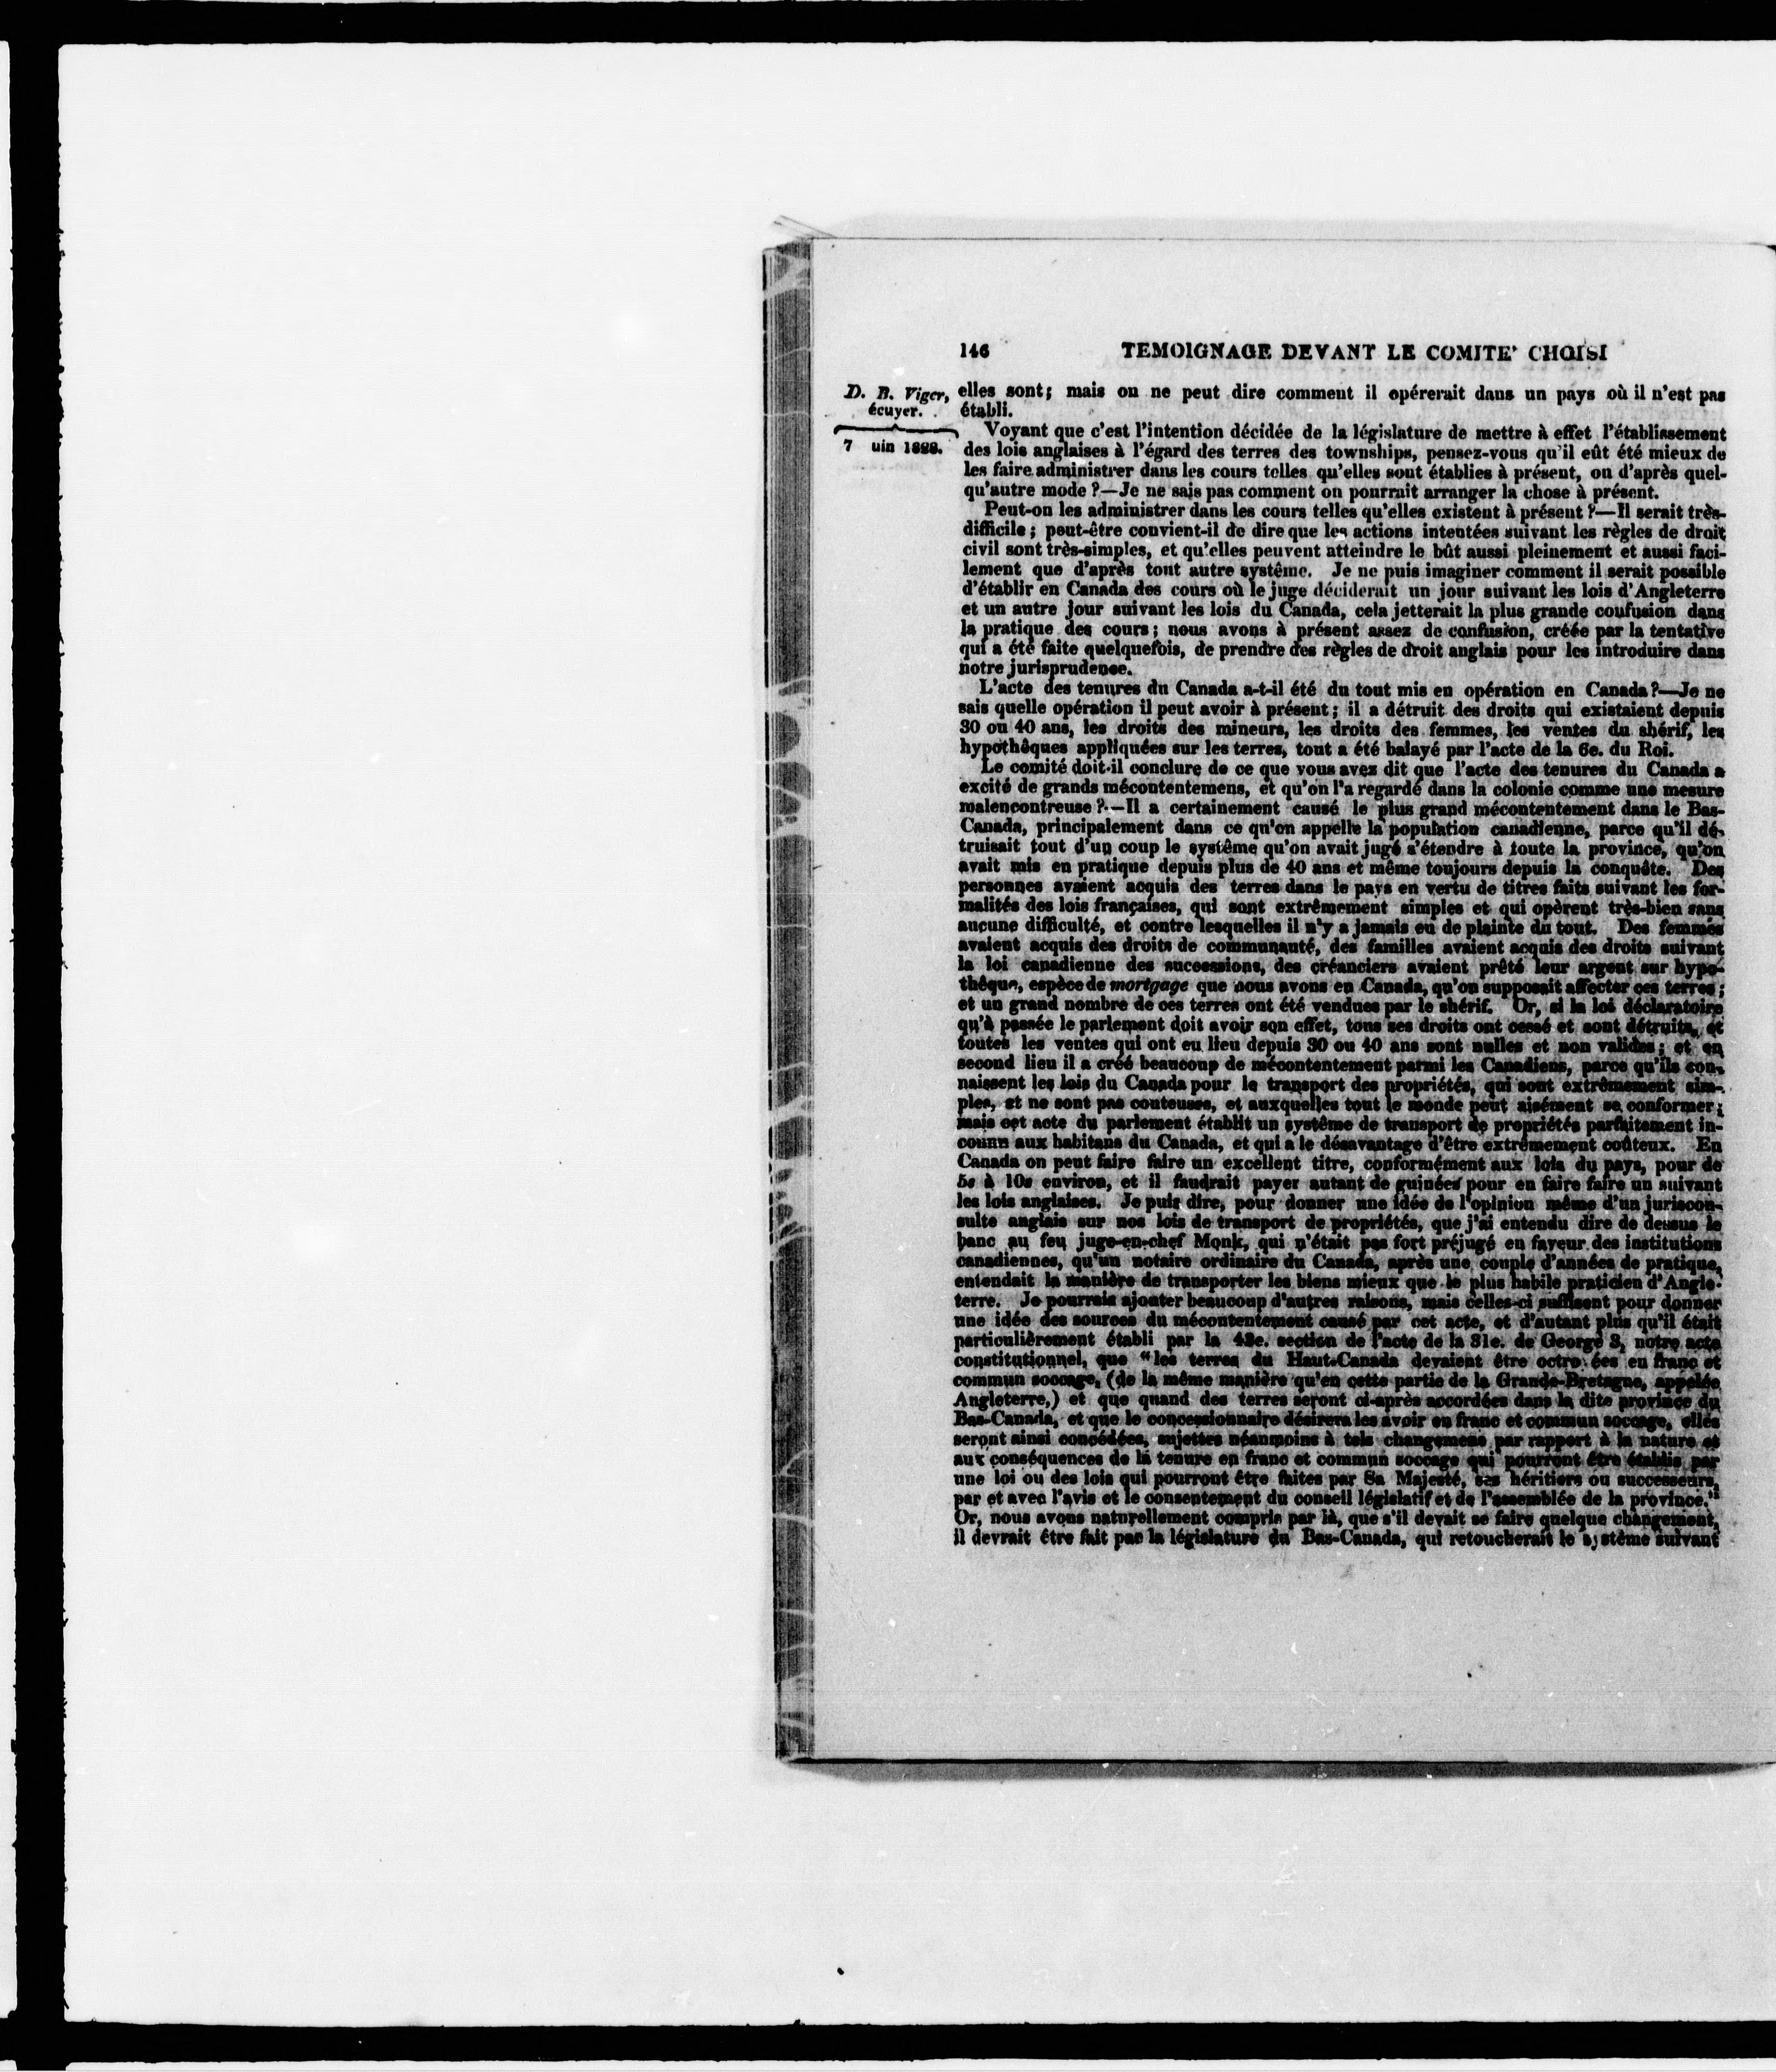 146 TEMOIGNAGE DEVANT LE COMITE' CHOISI
D. B. Viger,
écuyer.
7 uin 1828.
elles sont; mais on ne peut dire comment il opérerait dans un pays où il n'est pas
établi.
Voyant que c'est l'intention décidée de la législature de mettre à effet l'établissement
des lois anglaises à l'égard des terres des townships, pensez-vous qu'il eût été mieux de
les faire administrer dans les cours telles qu'elles sont établies à présent, ou d'après quel-
qu'autre mode ?—Je ne sais pas comment on pourrait arranger la chose à présent.
Peut-on les administrer dans les cours telles qu'elles existent à présent ?—Il serait très-
difficile ; peut-être convient-il de dire que les actions intentées suivant les règles de droit
civil sont très-simples, et qu'elles peuvent atteindre le bût aussi pleinement et aussi faci-
lement que d'après tout autre systême. Je ne puis imaginer comment il serait possible
d'établir en Canada des cours où le juge déciderait un jour suivant les lois d'Angleterre
et un autre jour suivant les lois du Canada, cela jetterait la plus grande confusion dans
la pratique des cours ; nous avons à présent assez de confusion, créée par la tentative
qui a été faite quelquefois, de prendre des règles de droit anglais pour les introduire dans
notre jurisprudence.
L'acte des tenures du Canada a-t-il été du tout mis en opération en Canada ?—Je ne
sais quelle opération il peut avoir à présent ; il a détruit des droits qui existaient depuis
30 ou 40 ans, les droits des mineurs, les droits des femmes, les ventes du shérif, les
hypothêques appliquées sur les terres, tout a été balayé par l'acte de la 6e. du Roi.
Le comité doit-il conclure de ce que vous avez dit que l'acte des tenures du Canada a
excité de grands mécontentemens, et qu'on l'a regardé dans la colonie comme une mesure
malencontreuse ?—Il a certainement causé le plus grand mécontentement dans le Bas-
Canada, principalement dans ce qu'on appelle la population canadienne, parce qu'il dé-
truisait tout d'un coup le systême qu'on avait jugé s'étendre à toute la province, qu'on
avait mis en pratique depuis plus de 40 ans et même toujours depuis la conquête. Des
personnes avaient acquis des terres dans le pays en vertu de titres faits suivant les for-
malités des lois françaises, qui sont extrêmement simples et qui opèrent très-bien sans
aucune difficulté, et contre lesquelles il n'y a jamais eu de plainte du tout. Des femmes
avaient acquis des droits de communauté, des familles avaient acquis des droits suivant
la loi canadienne des successions, des créanciers avaient prêté leur argent sur hypo-
thêque, espèce de mortgage que nous avons en Canada, qu'on supposait affecter ces terres ;
et un grand nombre de ces terres ont été vendues par le shérif. Or, si la loi déclaratoire
qu'à passée le parlement doit avoir son effet, tous ses droits ont cessé et sont détruits, et
toutes les ventes qui ont eu lieu depuis 30 ou 40 ans sont nulles et non valides ; et en
second lieu il a créé beaucoup de mécontentement parmi les Canadiens, parce qu'ils con-
naissent les lois du Canada pour le transport des propriétés, qui sont extrêmement sim-
ples, et ne sont pas couteuses, et auxquelles tout le monde peut aisément se conformer ;
mais cet acte du parlement établit un systême de transport de propriétés parfaitement in-
connu aux habitans du Canada, et qui a le désavantage d'être extrêmement coûteux. En
Canada on peut faire faire un excellent titre, conformément aux lois du pays, pour de
5s à 10s environ, et il faudrait payer autant de guinées pour en faire faire un suivant
les lois anglaises. Je puis dire, pour donner une idée de l'opinion même d'un juriscon-
sulte anglais sur nos lois de transport de propriétés, que j'ai entendu dire de dessus le
banc au feu juge-en-chef Monk, qui n'était pas fort préjugé en faveur des institutions
canadiennes, qu'un notaire ordinaire du Canada, après une couple d'années de pratique,
entendait la manière de transporter les biens mieux que le plus habile praticien d'Angle-
terre. Je pourrais ajouter beaucoup d'autres raisons, mais celles-ci suffisent pour donner
une idée des sources du mécontentement causé par cet acte, et d'autant plus qu'il était
particulièrement établi par la 43e. section de l'acte de la 31e. de George 3, notre acte
constitutionnel, que "les terres du Haut-Canada devaient être octro ées en franc et
commun soccage, (de la même manière qu'en cette partie de la Grande-Bretagne, appelée
Angleterre,) et que quand des terres seront ci-après accordées dans la dite province du
Bas-Canada, et que le concessionnaire désirera les avoir en franc et commun soccage, elles
seront ainsi concédées, sujettes néanmoins à tels changemens par rapport à la nature et
aux conséquences de la tenure en franc et commun soccage qui pourront être établis par
une loi ou des lois qui pourront être faites par Sa Majesté, ses héritiers ou successeurs,
par et avec l'avis et le consentement du conseil législatif et de l'assemblée de la province."
Or, nous avons naturellement compris par là, que s'il devait se faire quelque changement,
il devrait être fait par la législature du Bas-Canada, qui retoucherait le systême suivant